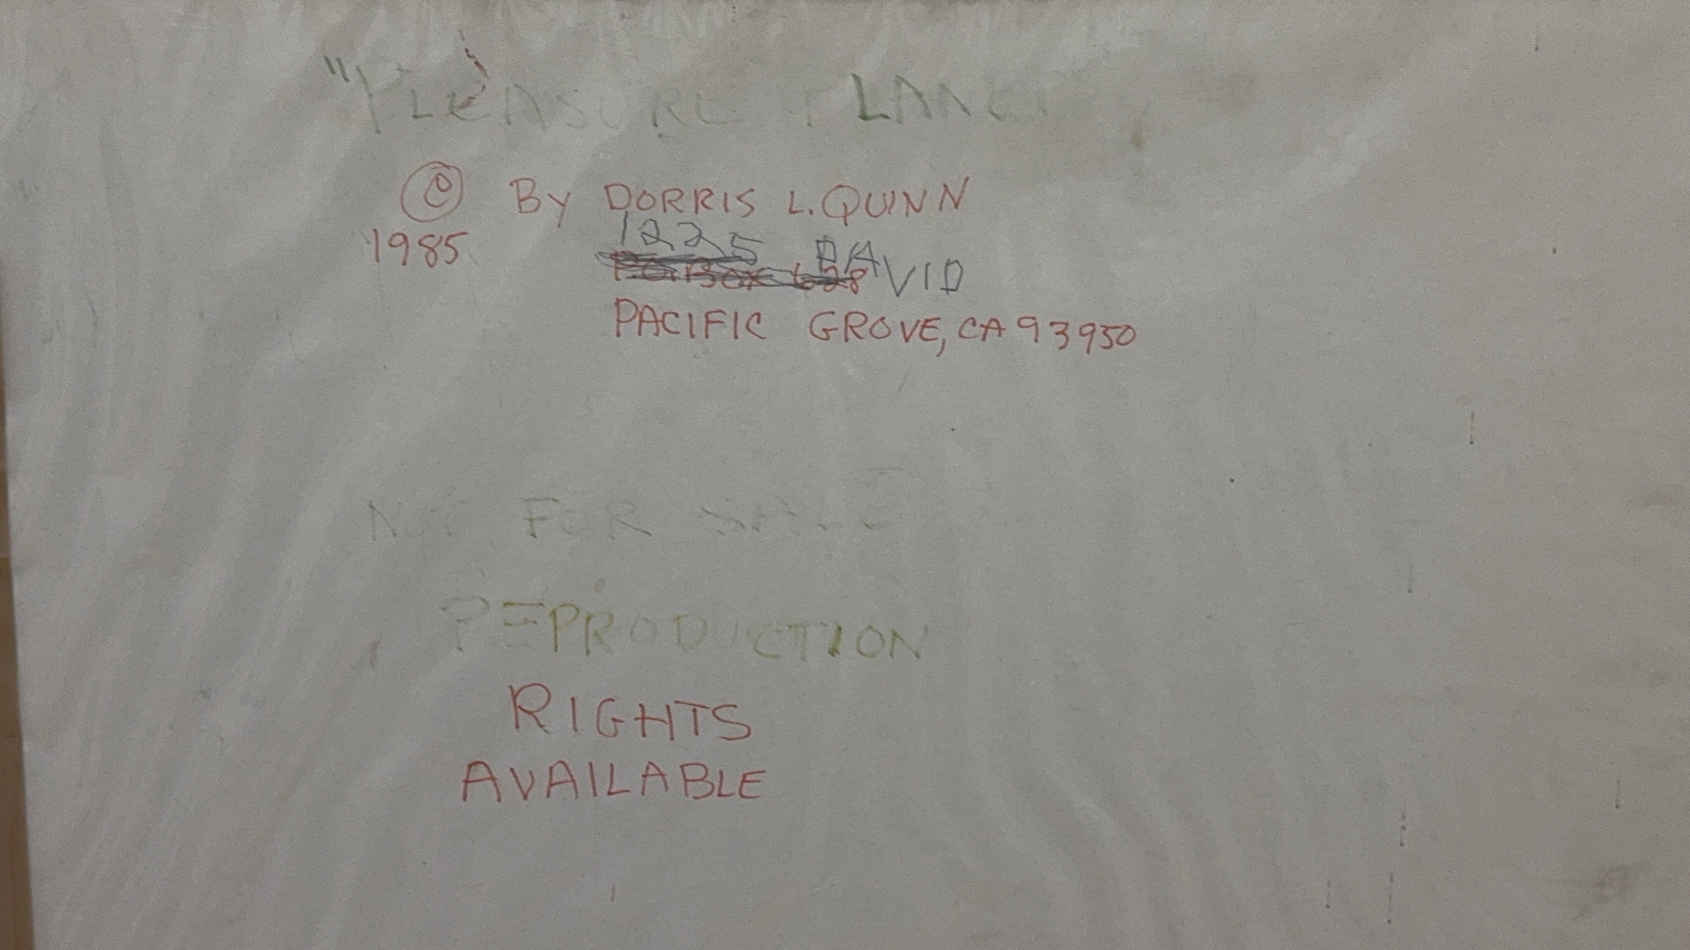 "PLEASURE PLANET"
© BY DORRIS L. QUINN
1985
1225 DAVID
P.O. BOX 628
PACIFIC GROVE, CA 93950
NOT FOR SALE
REPRODUCTION
RIGHTS
AVAILABLE